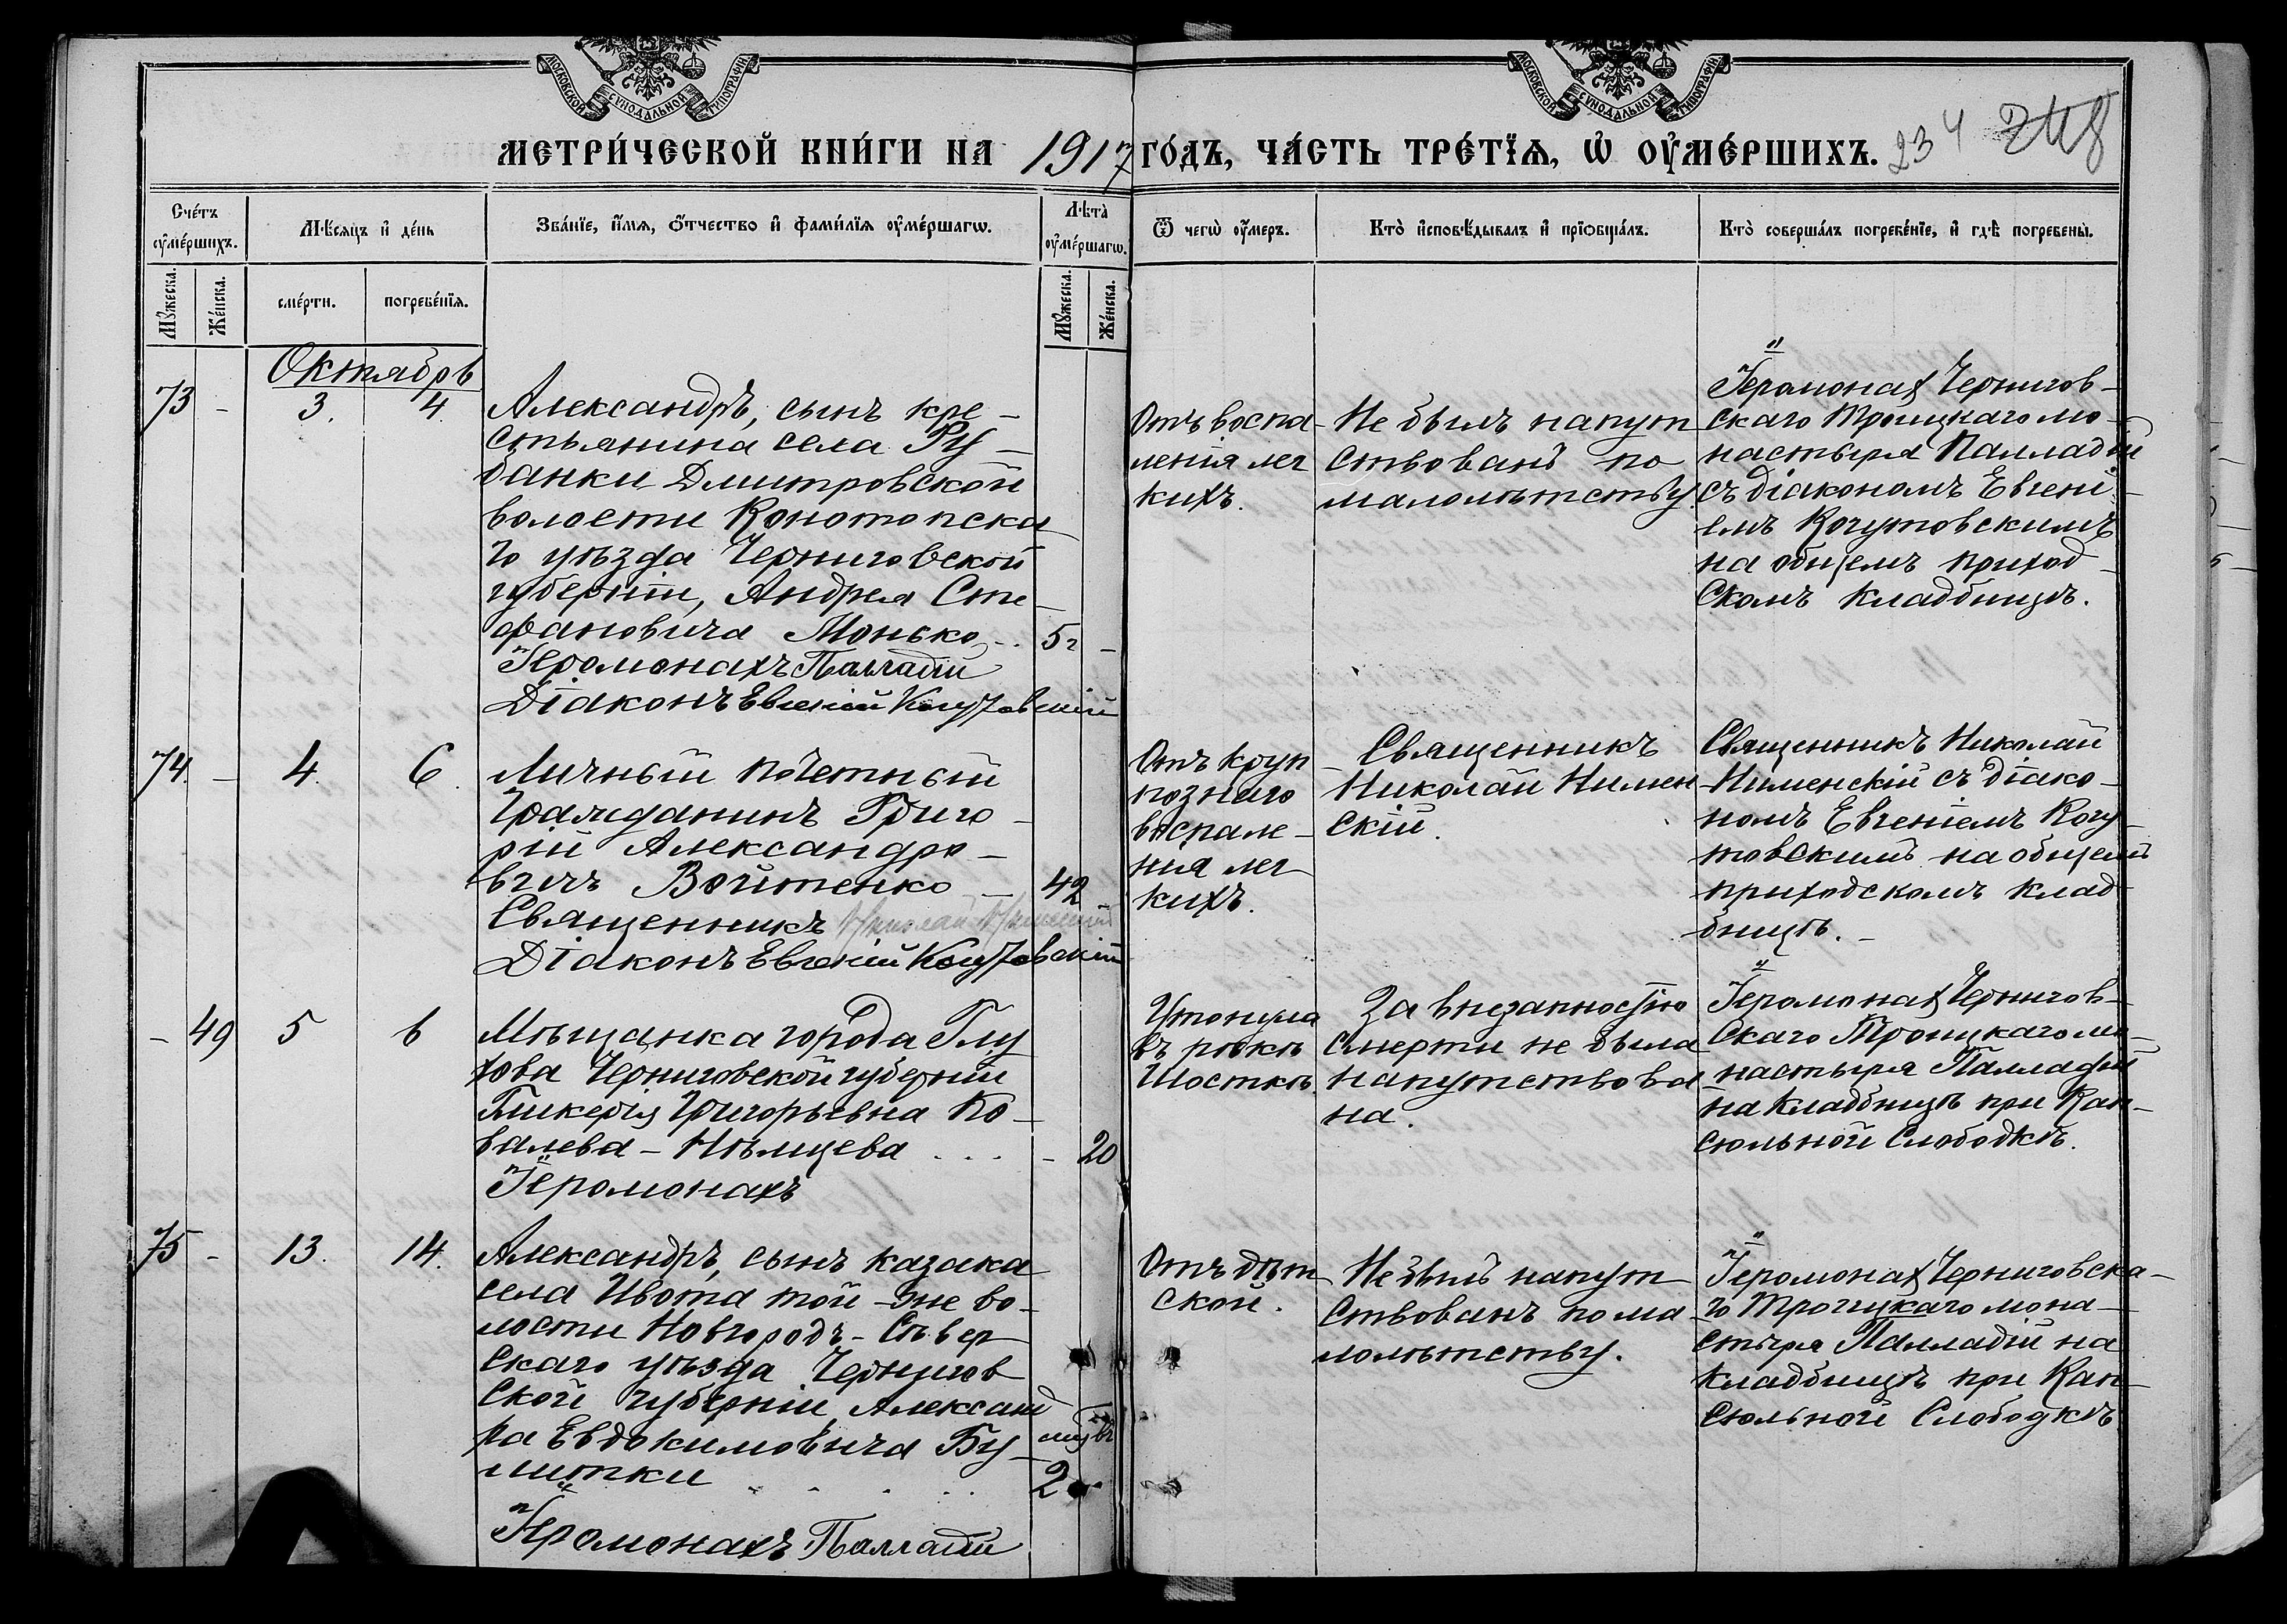 МОСКОВСКОЙ СУНОДАЛЬНОЙ ТИПОГРАФІИ
МОСКОВСКОЙ СУНОДАЛЬНОЙ ТИПОГРАФІИ
МЕТРИ́ЧЕСКОЙ КНИ́ГИ НА 1917 ГО́ДЪ, ЧА́СТЬ ТРЕ́ТЇѦ, Ѡ҆ ОУ҆МЕ́РШИХЪ.
234
Сче́тъ оу҆ме́ршихъ.
Мѣ́сѧцъ и҆ де́нь
Зва́нїе, и҆́мѧ, ѻ҆́тчество и҆ фами́лїѧ оу҆ме́ршагѡ.
Лѣта̀ оу҆ме́ршагѡ.
Ѿ чегѡ̀ оу҆́меръ.
Кто̀ и҆сповѣ́дывалъ и҆ прїѡбща́лъ.
Кто̀ соверша́лъ погребе́нїе, и҆ гдѣ̀ погребены̀.
Мꙋ́жеска.
Же́нска.
сме́рти.
погребе́нїѧ.
Мꙋ́жеска.
Же́нска.
Октябрь
73 - 3. 4.
Александръ, сынъ кре-
стьянина села Ру-
банки Дмитровской
волости Конотопска
го уѣзда Черниговской
губерніи, Андрея Сте-
фановича Монько 5 г -
Іеромонахъ Палладій
Діаконъ Евгеній Когутовскій
Отъ воспа-
ленія лег
кихъ.
Не былъ напут
ствованъ по
малолѣтству.
Іеромонах Чернигов-
скаго Троицкаго мо-
настыря Палладій
съ діакономъ Евгені-
емъ Когутовскимъ
на общемъ приход-
скомъ кладбищѣ.
74. - 4. 6.
Личный почетный
гражданинъ Григо-
рій Александро-
вичъ Войтенко - 42
Священникъ Николай
Діаконъ Евгеній Когутовскій
Отъ круп
познаго
воспале-
нія лег
кихъ.
Священникъ
Николай Нимен
скій.
Священникъ Николай
Нименскій съ діако-
номъ Евгеніемъ Когу-
товскимъ на общемъ
приходскомъ клад-
бищѣ. -
- 49 5 6
Мѣщанка города Глу
хова Черниговской губерніи
Гликерія Григорьевна Ко-
валева - Нѣмцева . . . - 20
Іеромонахъ
Утонула
въ рѣкѣ
Шосткѣ.
За внезапностію
смерти не была
напутствова
на.
Іеромонах Чернигов-
скаго Троицкаго мо-
настыря Палладій
на кладбищѣ при Кап-
сюльной Слободкѣ.
75 - 13. 14.
Александръ, сынъ казака
села Ивота той-же во-
лости Новгородъ-Сѣвер
скаго уѣзда Чернигов
ской губерніи, Александ
ра Евдокимовича Бу-
литки . . . . 2
Іеромонахъ Палладій
Отъ дѣт
ской.
Не былъ напут
ствованъ по ма
лолѣтству.
Іеромонах Черниговска-
го Троицкаго мона-
стыря Палладій на
кладбищѣ при Кап-
сюльной Слободкѣ